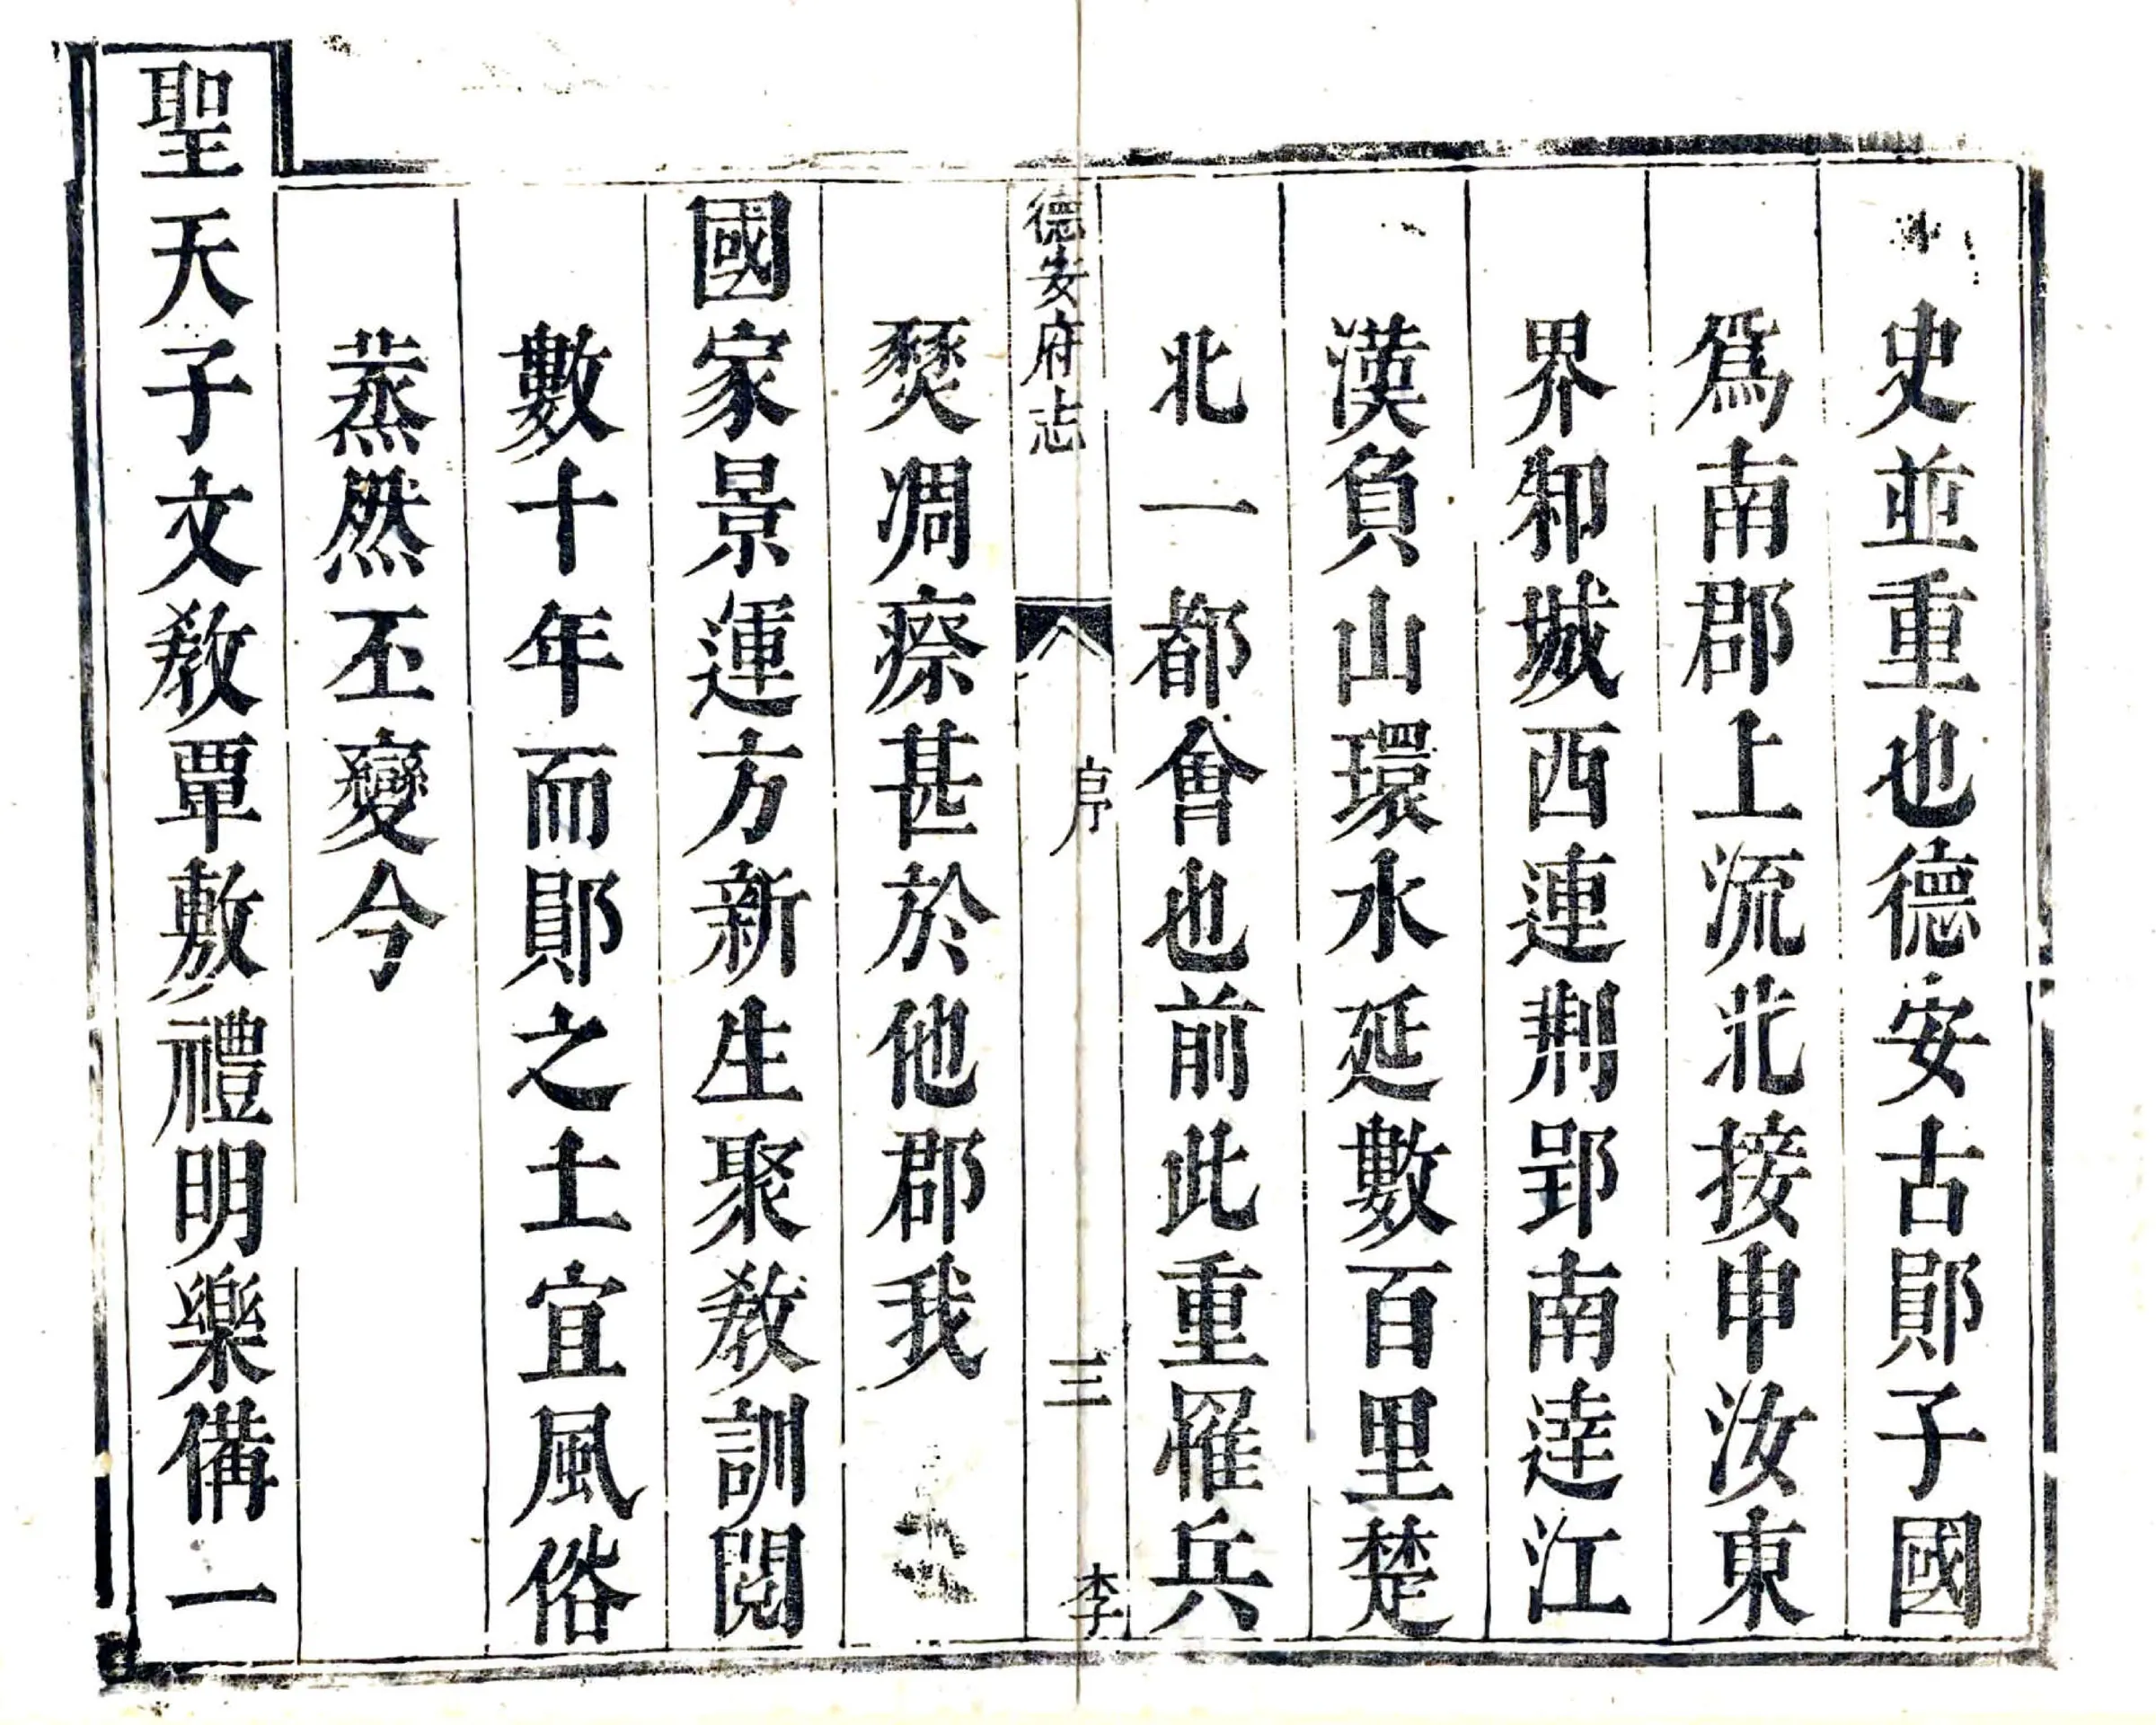 史並重也德安古鄖子國
爲南郡上流北接申汝東
界邾城西連荆郢南逹江
漢負山環水延數百里楚
北一都會也前此重罹兵
德安府志 序 三 李
燹凋瘵甚於他郡我
國家景運方新生聚敎訓閱
數十年而鄖之土宜風俗
蒸然丕變今
聖天子文敎覃敷禮明樂備一